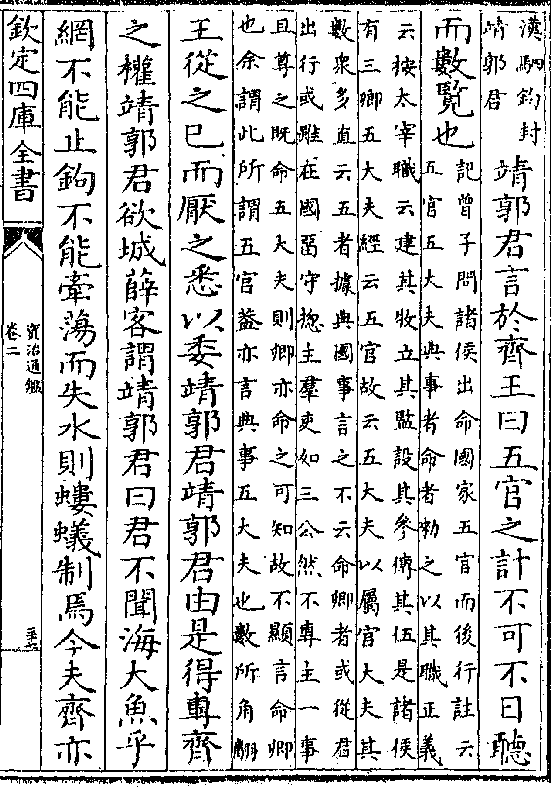 漢駟鈞封
靖郭君
靖郭君言於齊王曰五官之計不可不日聽
而數覽也
記曾子問諸侯出命國家五官而後行註云
五官五大夫典事者命者勑之以其職正義
云按太宰職云建其牧立其監設其參傅其伍是諸侯
有三卿五大夫經云五官故云五大夫以屬官大夫其
數衆多直云五者據典國事言之不云命卿者或從君
出行或雖在國留守揔主羣吏如三公然不專主一事
且尊之既命五大夫則卿亦命之可知故不顯言命卿
也余謂此所謂五官葢亦言典事五大夫也數所角翻
王從之已而厭之悉以委靖郭君靖郭君由是得專齊
之權靖郭君欲城薛客謂靖郭君曰君不聞海大魚乎
網不能止鉤不能牽蕩而失水則螻蟻制焉今夫齊亦
欽定四庫全書
資治通鑑
卷二